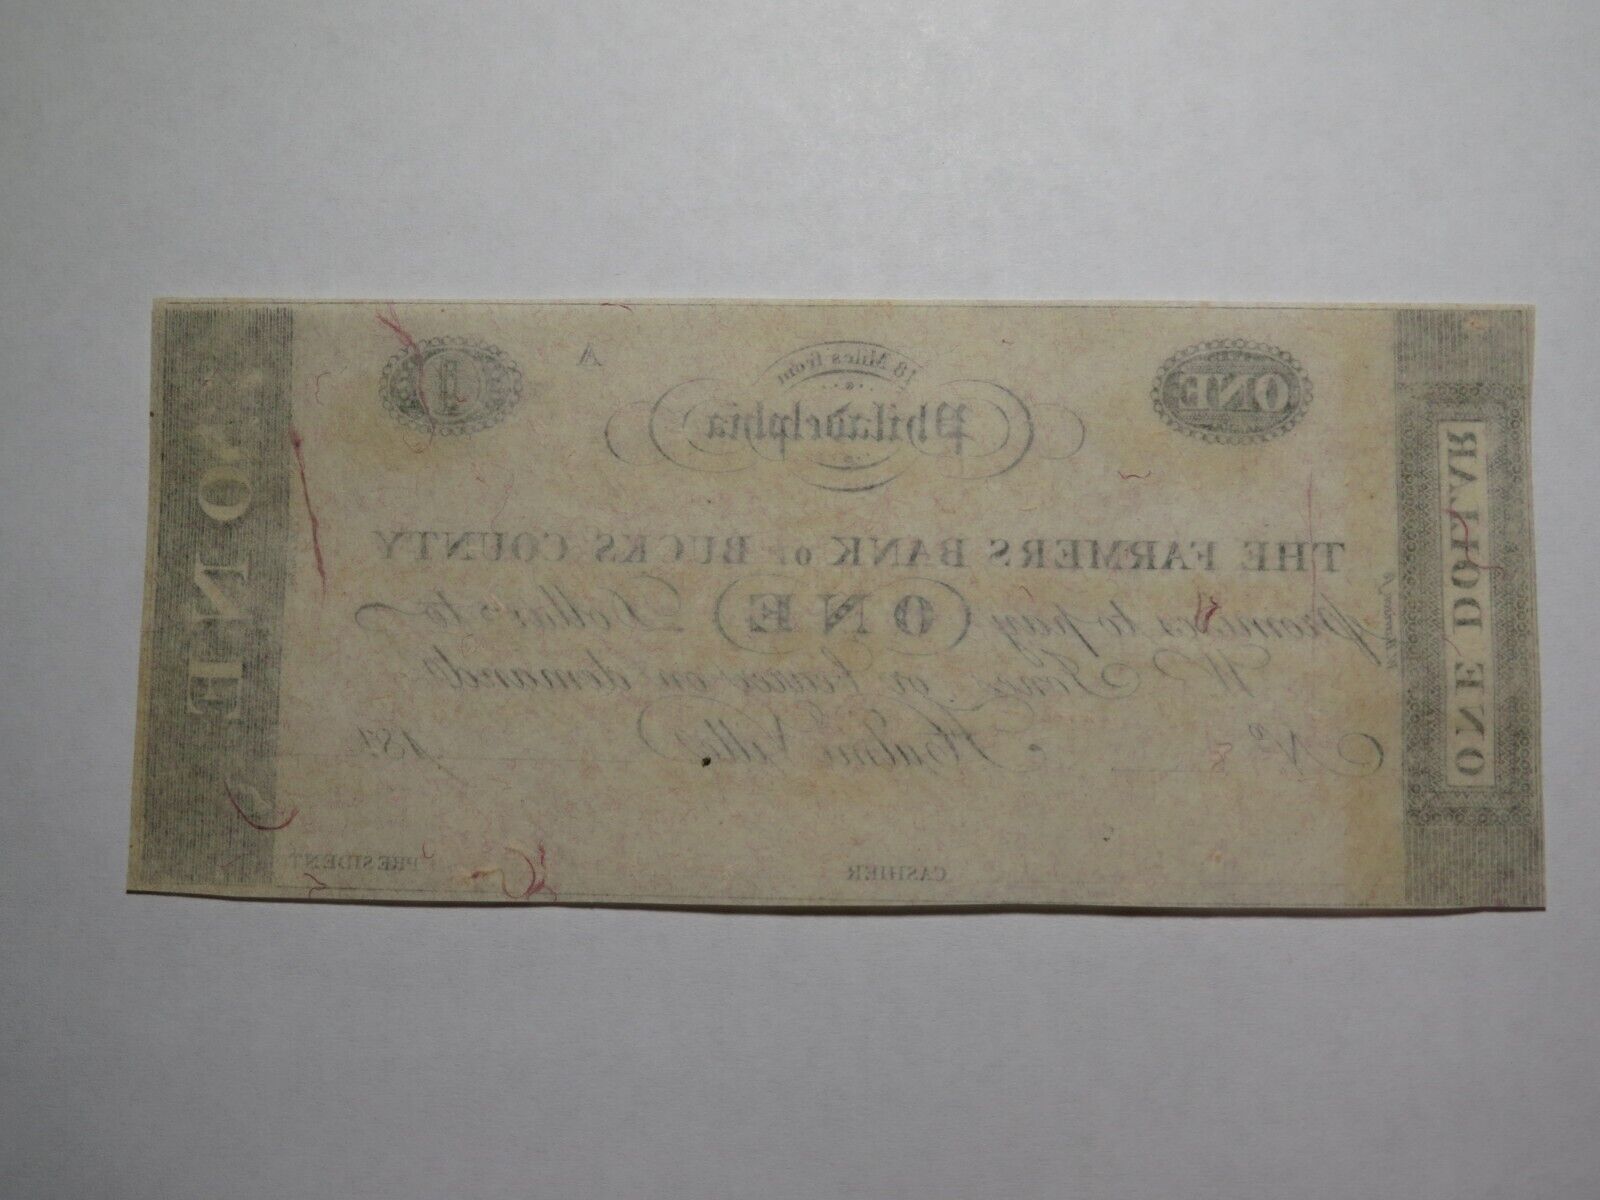 ONE
18 Miles from
A
1
Philadelphia
THE FARMERS BANK of BUCKS COUNTY
promises to pay ONE Dollars to
or bearer on demand
No
Hulme Ville
181
CASHIER
PRESIDENT
ONE DOLLAR
ONE